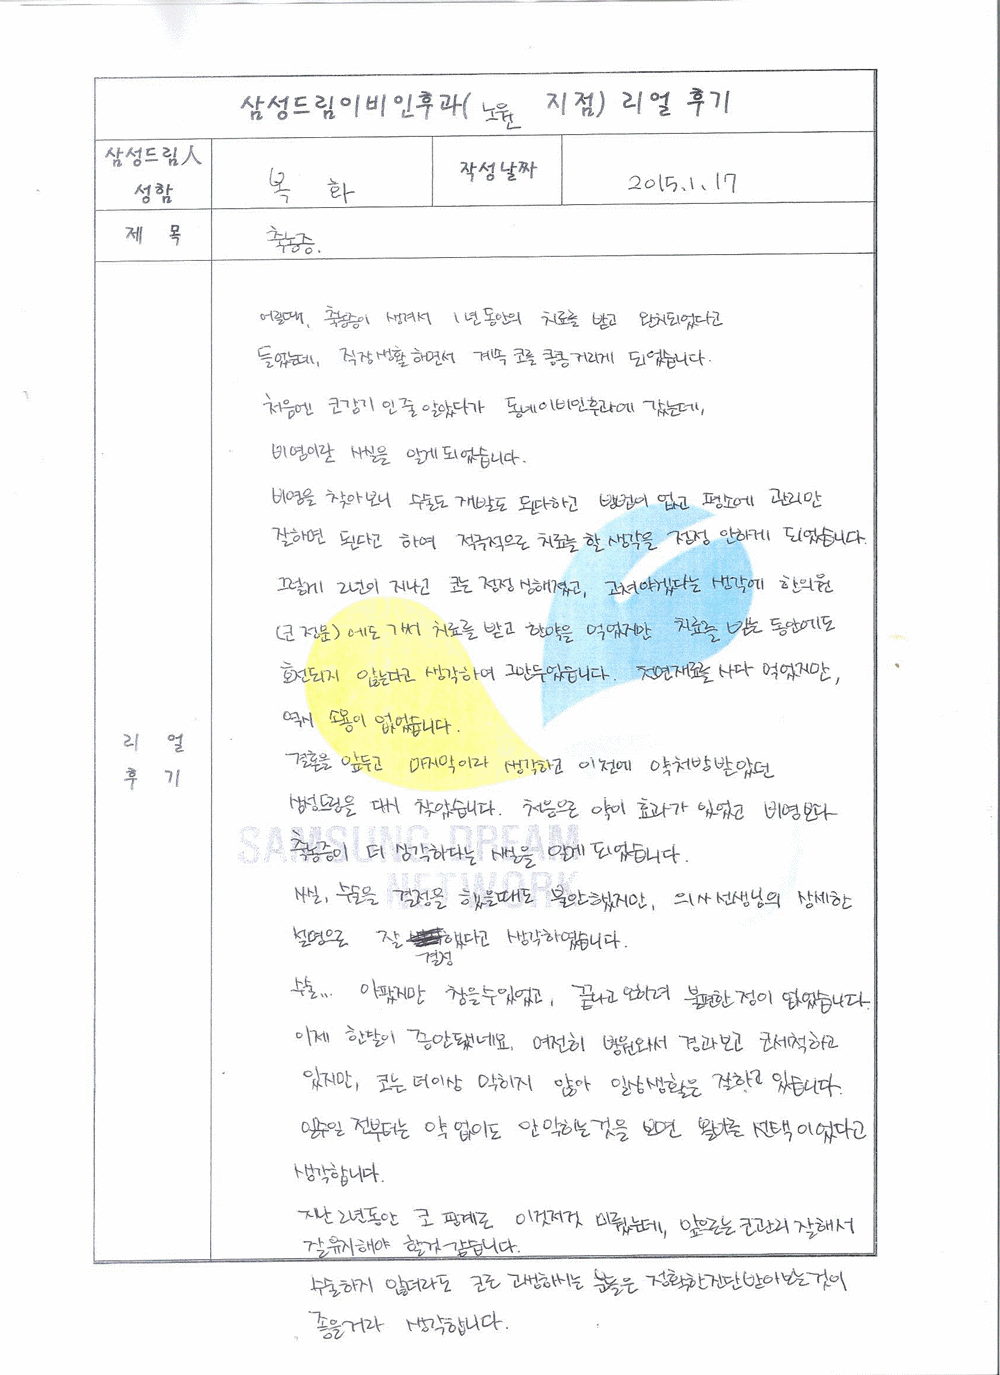 삼성드림이비인후과( 노원 지점) 리얼 후기
삼성드림人 성함
복 화
작성날짜
2015.1.17
제 목
축농증.
리 얼 후 기
어릴때, 축농증이 생겨서 1년동안의 치료를 받고 완치되었다고
들었는데, 직장생활 하면서 계속 코를 킁킁거리게 되었습니다.
처음엔 코감기 인줄 알았다가 동네이비인후과에 갔는데,
비염이란 사실을 알게되었습니다.
비염을 찾아보니 수술도 재발도 된다하고 방법이 없고 평소에 관리만
잘하면 된다고 하여 적극적으로 치료를 할 생각을 점점 안하게 되었습니다.
그렇게 2년이 지나고 코는 점점 심해졌고, 고쳐야겠다는 생각에 한의원
(코 전문) 에도 가서 치료를 받고 한약을 먹었지만 치료를 받는 동안에도
호전되지 않는다고 생각하여 그만두었습니다. 천연재료를 사다 먹었지만,
역시 소용이 없었습니다.
결혼을 앞두고 마지막이라 생각하고 이전에 약처방받았던
삼성드림을 다시 찾았습니다. 처음으로 약이 효과가 있었고 비염보다
축농증이 더 심각하다는 사실을 알게 되었습니다.
SAMSUNG DREAM
NETWORK
사실, 수술을 결정을 했을때도 불안했지만, 의사선생님의 상세한
설명으로 잘 결정했다고 생각하였습니다.
수술... 아팠지만 참을수있었고, 끝나고 오히려 불편한 점이 없었습니다.
이제 한달이 좀안됐네요. 여전히 병원와서 경과보고 코세척하고
있지만, 코는 더이상 막히지 않아 일상생활은 잘하고 있습니다.
일주일 전부터는 약 없이도 안막히는것을 보면 올바른 선택이었다고
생각합니다.
지난 2년동안 코 핑계로 이것저것 미뤘는데, 앞으로는 코관리 잘해서
잘유지해야 할것 같습니다.
수술하지 않더라도 코로 고생하시는 분들은 정확한진단받아보는것이
좋을거라 생각합니다.